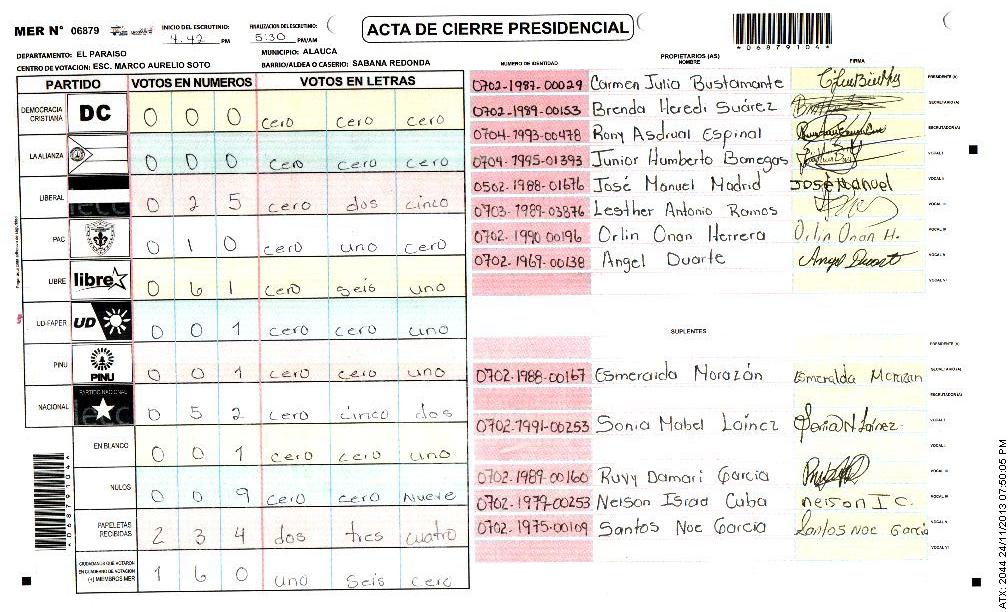 MER N° 06879
INICIO DEL ESCRUTINIO: 4.42 PM
FINALIZACION DEL ESCRUTINIO: 5:30 PM/AM
ACTA DE CIERRE PRESIDENCIAL
*06879104*
DEPARTAMENTO: EL PARAISO
MUNICIPIO: ALAUCA
CENTRO DE VOTACION: ESC. MARCO AURELIO SOTO
BARRIO/ALDEA O CASERIO: SABANA REDONDA
PARTIDO VOTOS EN NUMEROS VOTOS EN LETRAS
DEMOCRACIA CRISTIANA DC 0 0 0 cero cero cero
LA ALIANZA 0 0 0 cero cero cero
LIBERAL 0 2 5 cero dos cinco
PAC 0 1 0 cero uno cero
LIBRE libre 0 6 1 cero seis uno
UD-FAPER UD 0 0 1 cero cero uno
PINU PINU 0 0 1 cero cero uno
NACIONAL PARTIDO NACIONAL 0 5 2 cero cinco dos
EN BLANCO 0 0 1 cero cero uno
NULOS 0 0 9 cero cero nueve
PAPELETAS RECIBIDAS 2 3 4 dos tres cuatro
CIUDADANOS QUE VOTARON EN CUADERNO DE VOTACION (+) MIEMBROS MER 1 6 0 uno seis cero
*06879104*
NUMERO DE IDENTIDAD
PROPIETARIOS (AS)
NOMBRE
FIRMA
0702-1987-00029 Carmen Julia Bustamante PRESIDENTE (A)
0702-1989-00153 Brenda Heredi Suárez SECRETARIO (A)
0704-1993-00478 Rony Asdrual Espinal ESCRUTADOR (A)
0704-1995-01393 Junior Humberto Banegas VOCAL I
0502-1988-01676 José Manuel Madrid José Manuel VOCAL II
0703-1989-03876 Lesther Antonio Ramos VOCAL III
0702-1990-00196 Orlin Onan Herrera Orlin Onan H. VOCAL IV
0702-1969-00138 Angel Duarte Angel Duarte VOCAL V
VOCAL VI
SUPLENTES
PRESIDENTE (A)
0702-1988-00167 Esmeralda Morazán Esmeralda Morazan SECRETARIO (A)
ESCRUTADOR (A)
0702-1991-00253 Sonia Mabel Laínez Sonia M Laínez. VOCAL I
VOCAL II
0702-1989-00160 Ruvy Damari Garcia VOCAL III
0702-1979-00253 Nelson Israd Cuba nelson I C. VOCAL IV
0702-1975-00109 Santos Noe Garcia Santos Noe Garcia VOCAL V
VOCAL VI
ATX: 2044 24/11/2013 07:50:05 PM